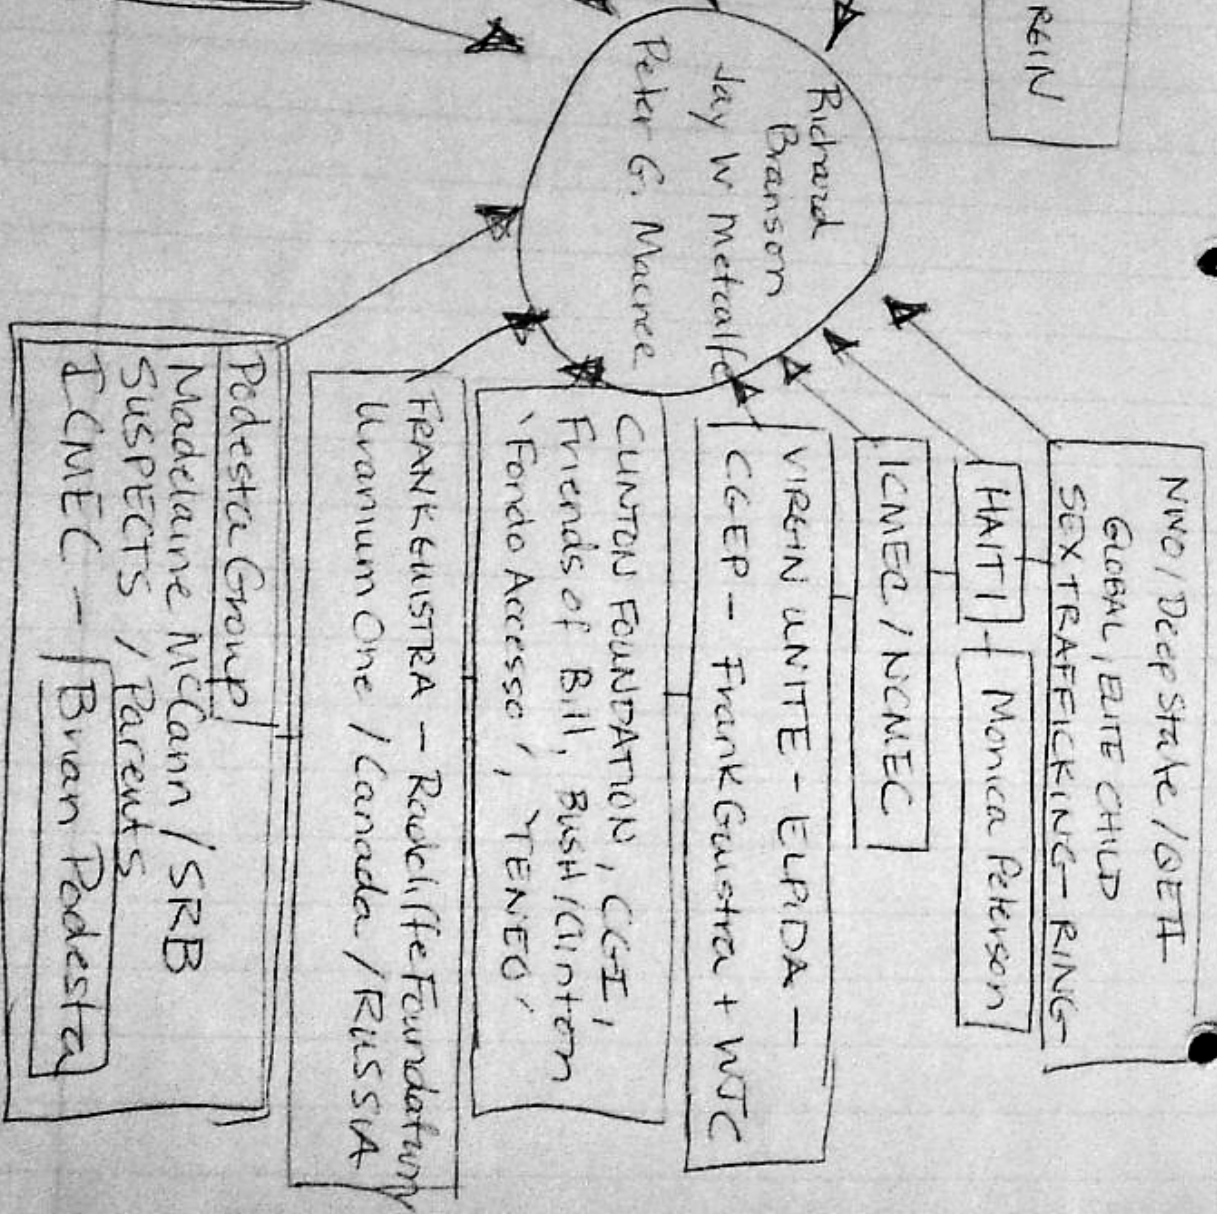 RGIN
Richard
Branson
Jay W Metcalfe
Peter G. Macnee
NWO / Deep State / QEII
GLOBAL, ELITE CHILD
SEX TRAFFICKING-RING
HAITI
Monica Peterson
ICMEC / NCMEC
VIRGIN UNITE - ELPIDA -
CGEP - Frank Guistra + WJC
CLINTON FOUNDATION, CGI,
Friends of Bill, Bush/Clinton
'Fondo Accesso', 'TENEO'
FRANK GUISTRA - Radcliffe Foundation
Uranium One / Canada / RUSSIA
Podesta Group
Madelaine McCann / SRB
SUSPECTS / Parents
ICMEC - Brian Podesta